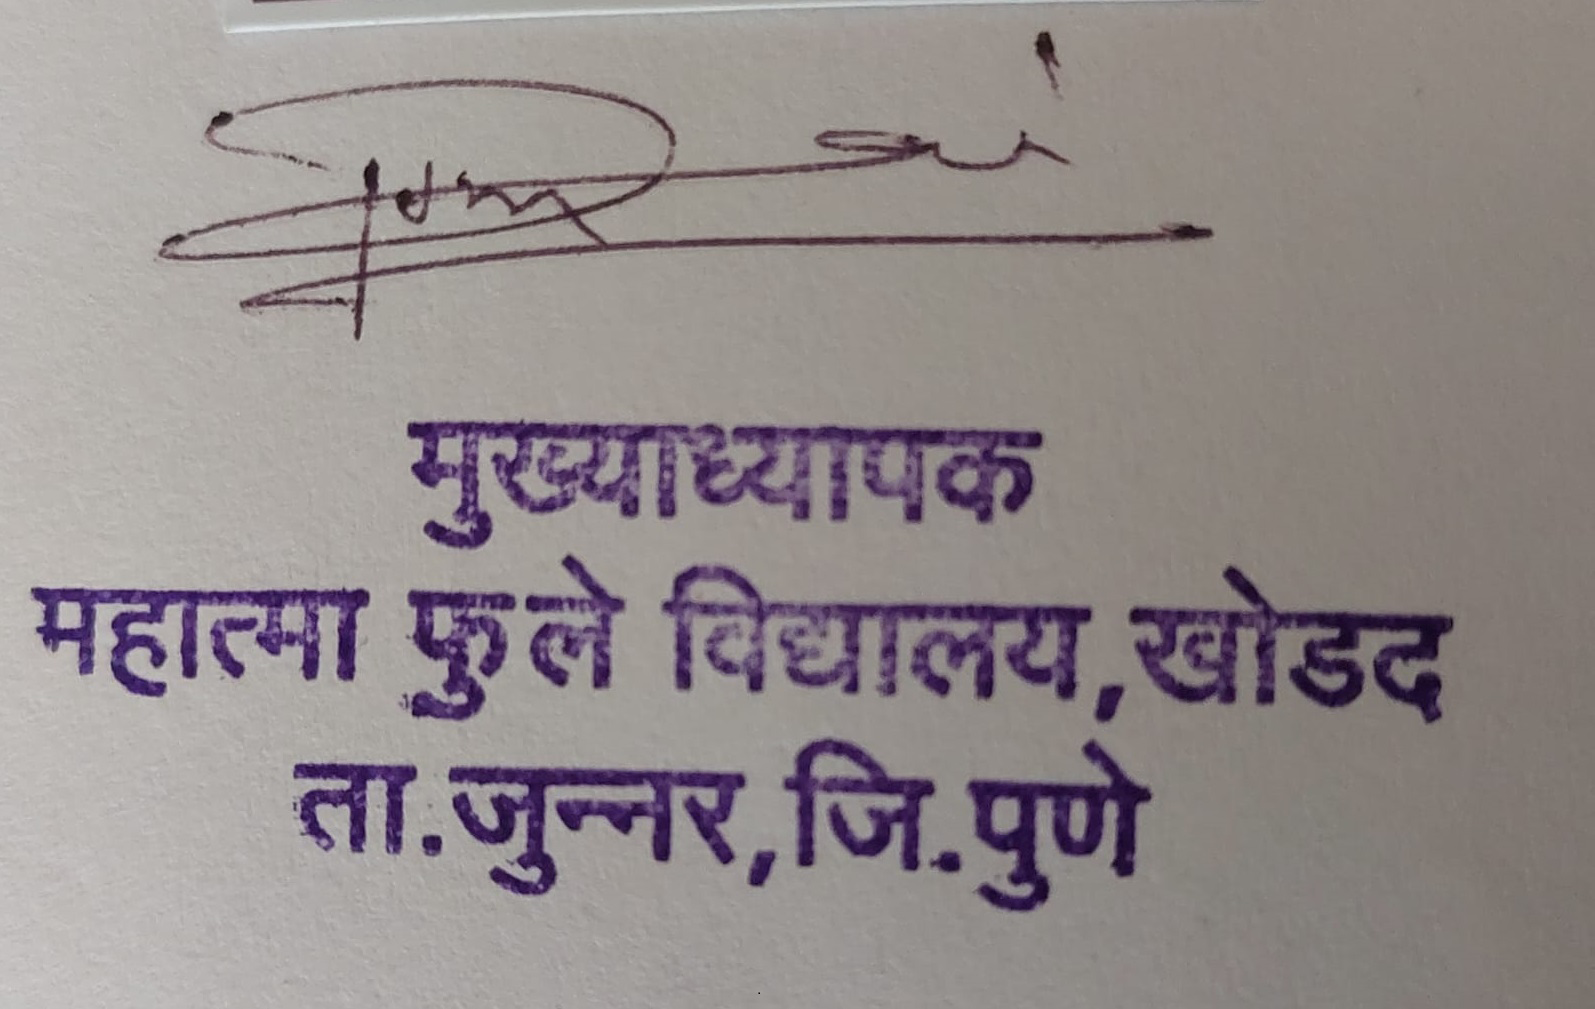 मुख्याध्यापक
महात्मा फुले विद्यालय,खोडद
ता.जुन्नर,जि.पुणे